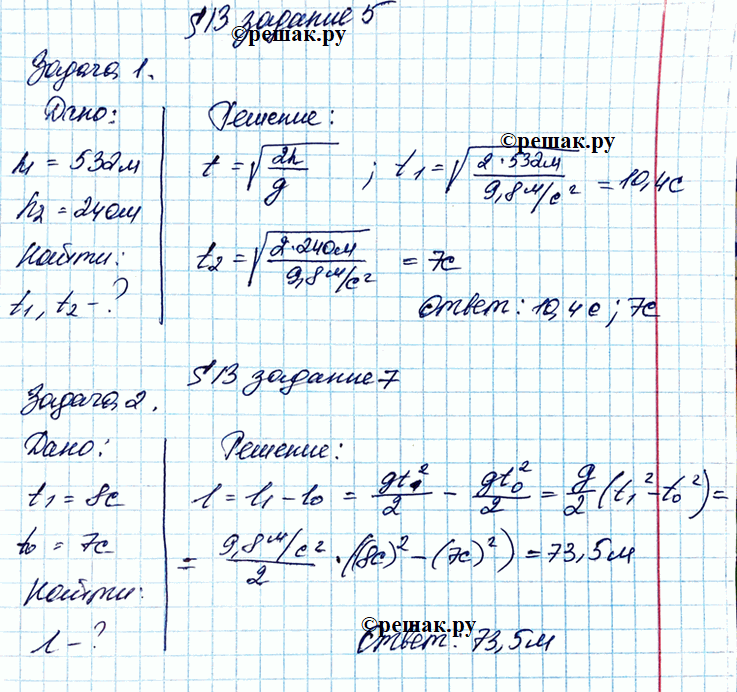 §13 задание 5
©решак.ру
Задача 1.
Дано:
h₁ = 532м
h₂ = 240м
Найти:
t₁, t₂ - ?
Решение:
©решак.ру
t = √(2h/g) ; t₁ = √(2·532м/9,8м/с²) = 10,4с
t₂ = √(2·240м/9,8м/с²) = 7с
Ответ: 10,4с; 7с
§13 задание 7
Задача 2.
Дано:
t₁ = 8с
t₀ = 7с
Найти:
l - ?
Решение:
l = l₁ - l₀ = gt₁²/2 - gt₀²/2 = g/2 (t₁² - t₀²) =
= 9,8м/с²/2 · ((8с)² - (7с)²) = 73,5м
©решак.ру
Ответ: 73,5м